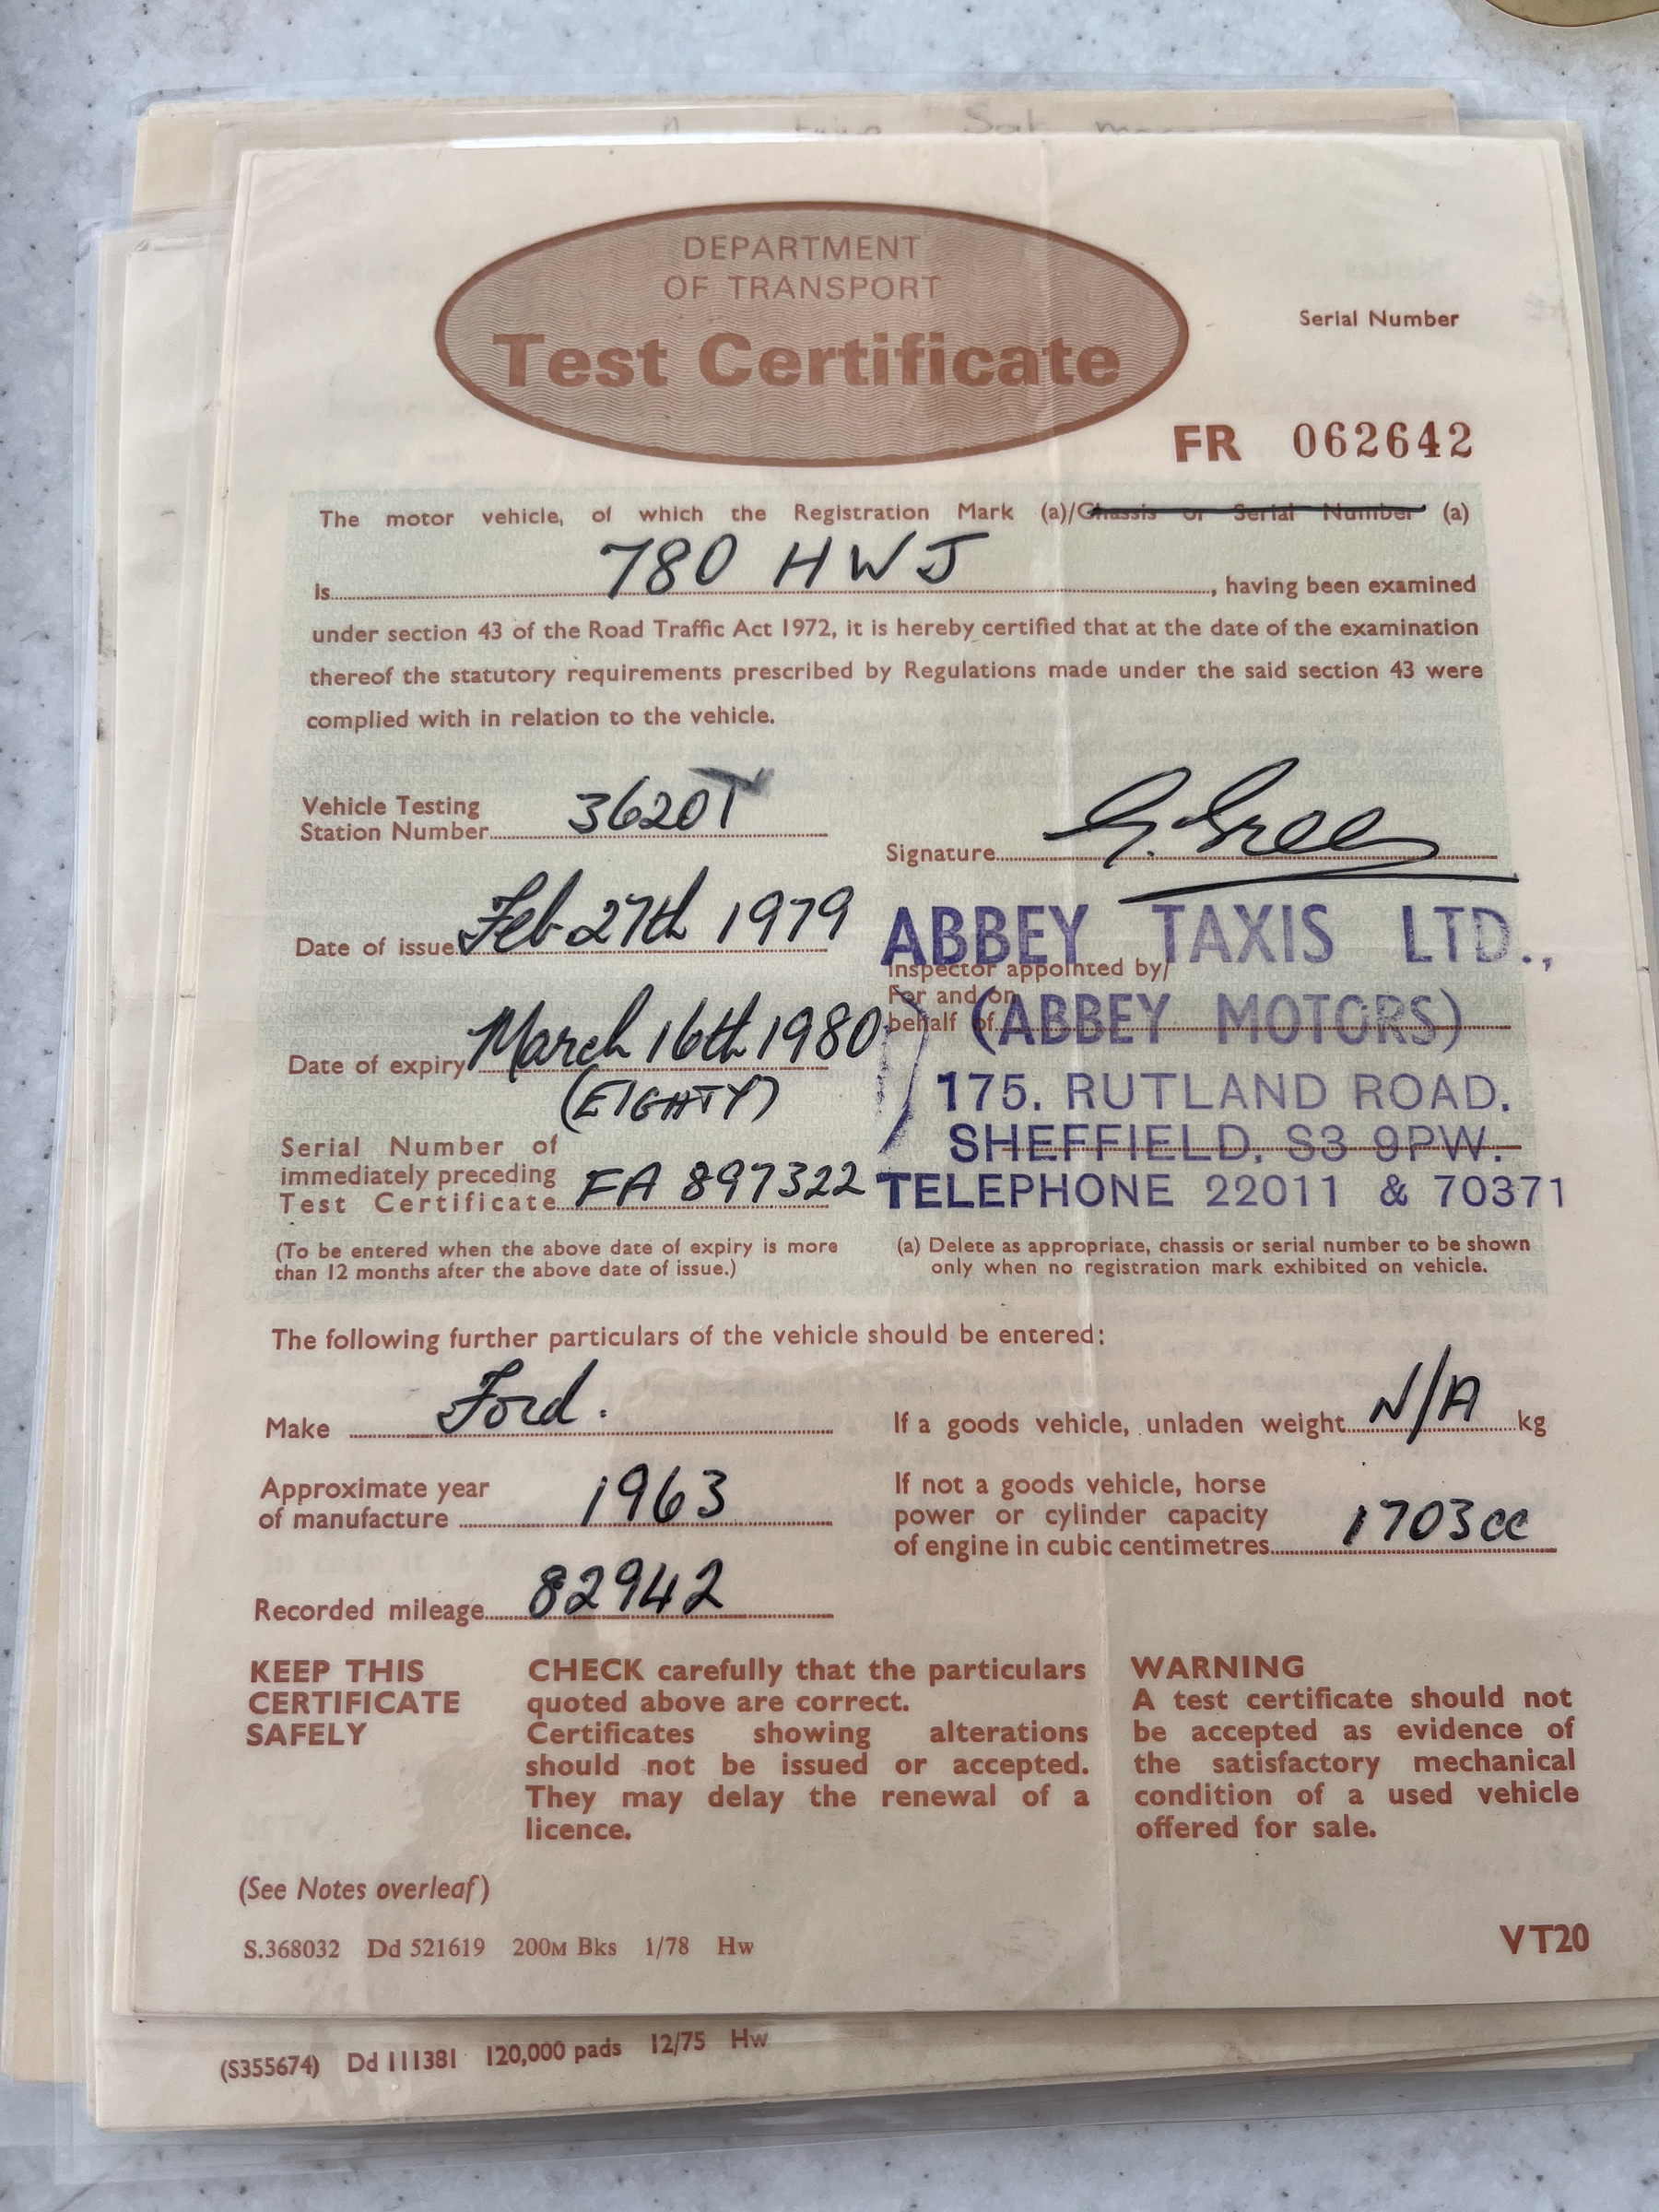 DEPARTMENT
OF TRANSPORT
Test Certificate
Serial Number
FR 062642
The motor vehicle, of which the Registration Mark (a)/Chassis or Serial Number (a)
Is 780 HWJ, having been examined
under section 43 of the Road Traffic Act 1972, it is hereby certified that at the date of the examination
thereof the statutory requirements prescribed by Regulations made under the said section 43 were
complied with in relation to the vehicle.
Vehicle Testing
Station Number 3620T
Signature G. Green
Date of issue Feb 27th 1979
ABBEY TAXIS LTD.,
Inspector appointed by/
For and on
behalf of
(ABBEY MOTORS)
Date of expiry March 16th 1980
(EIGHTY)
175. RUTLAND ROAD.
SHEFFIELD, S3 9PW.
TELEPHONE 22011 & 70371
Serial Number of
immediately preceding
Test Certificate FA 897322
(To be entered when the above date of expiry is more
than 12 months after the above date of issue.)
(a) Delete as appropriate, chassis or serial number to be shown
only when no registration mark exhibited on vehicle.
The following further particulars of the vehicle should be entered:
Make Ford.
If a goods vehicle, unladen weight N/A kg
Approximate year
of manufacture 1963
If not a goods vehicle, horse
power or cylinder capacity
of engine in cubic centimetres 1703cc
Recorded mileage 82942
KEEP THIS
CERTIFICATE
SAFELY
CHECK carefully that the particulars
quoted above are correct.
Certificates showing alterations
should not be issued or accepted.
They may delay the renewal of a
licence.
WARNING
A test certificate should not
be accepted as evidence of
the satisfactory mechanical
condition of a used vehicle
offered for sale.
(See Notes overleaf)
S.368032 Dd 521619 200M Bks 1/78 Hw
VT20
(S355674) Dd 111381 120,000 pads 12/75 Hw